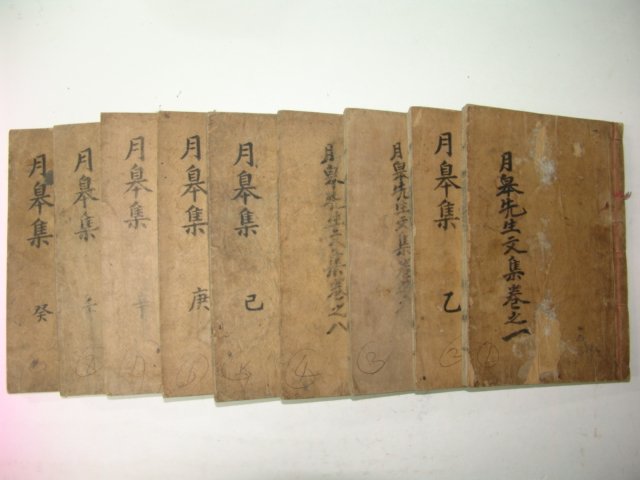 月皐先生文集卷之一
月皐集 乙
月皐先生文集卷之
月皐先生文集卷之八
月皐集 己
月皐集 庚
月皐集 辛
月皐集
月皐集 癸